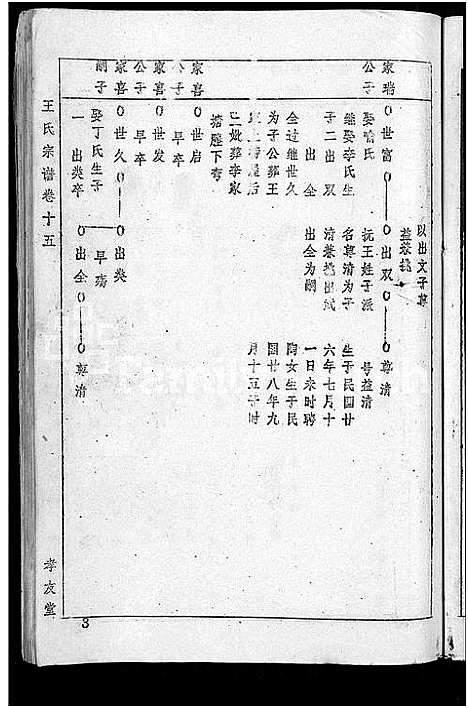 以出文子尊
益蓉桃
家瑞公子
○世富——○出双——○尊清
娶喻氏
继娶李氏生
子二出双
出全
全过继世久
为子公葬王
后
二妣葬李家
塘壁下弯
抚王姓子派
名尊清为子
清蓉桃出斌
出全为嗣
号益清
生于民国廿
六年七月十
一日未时聘
陶女生于民
国廿八年九
月十五子时
家喜公子
○世启
早卒
家喜公子
○世发
早卒
家喜嗣子
○世久——○出类
娶丁氏生子
一出类卒
早殇
○出全——○尊清
王氏宗谱卷十五
孝友堂
3